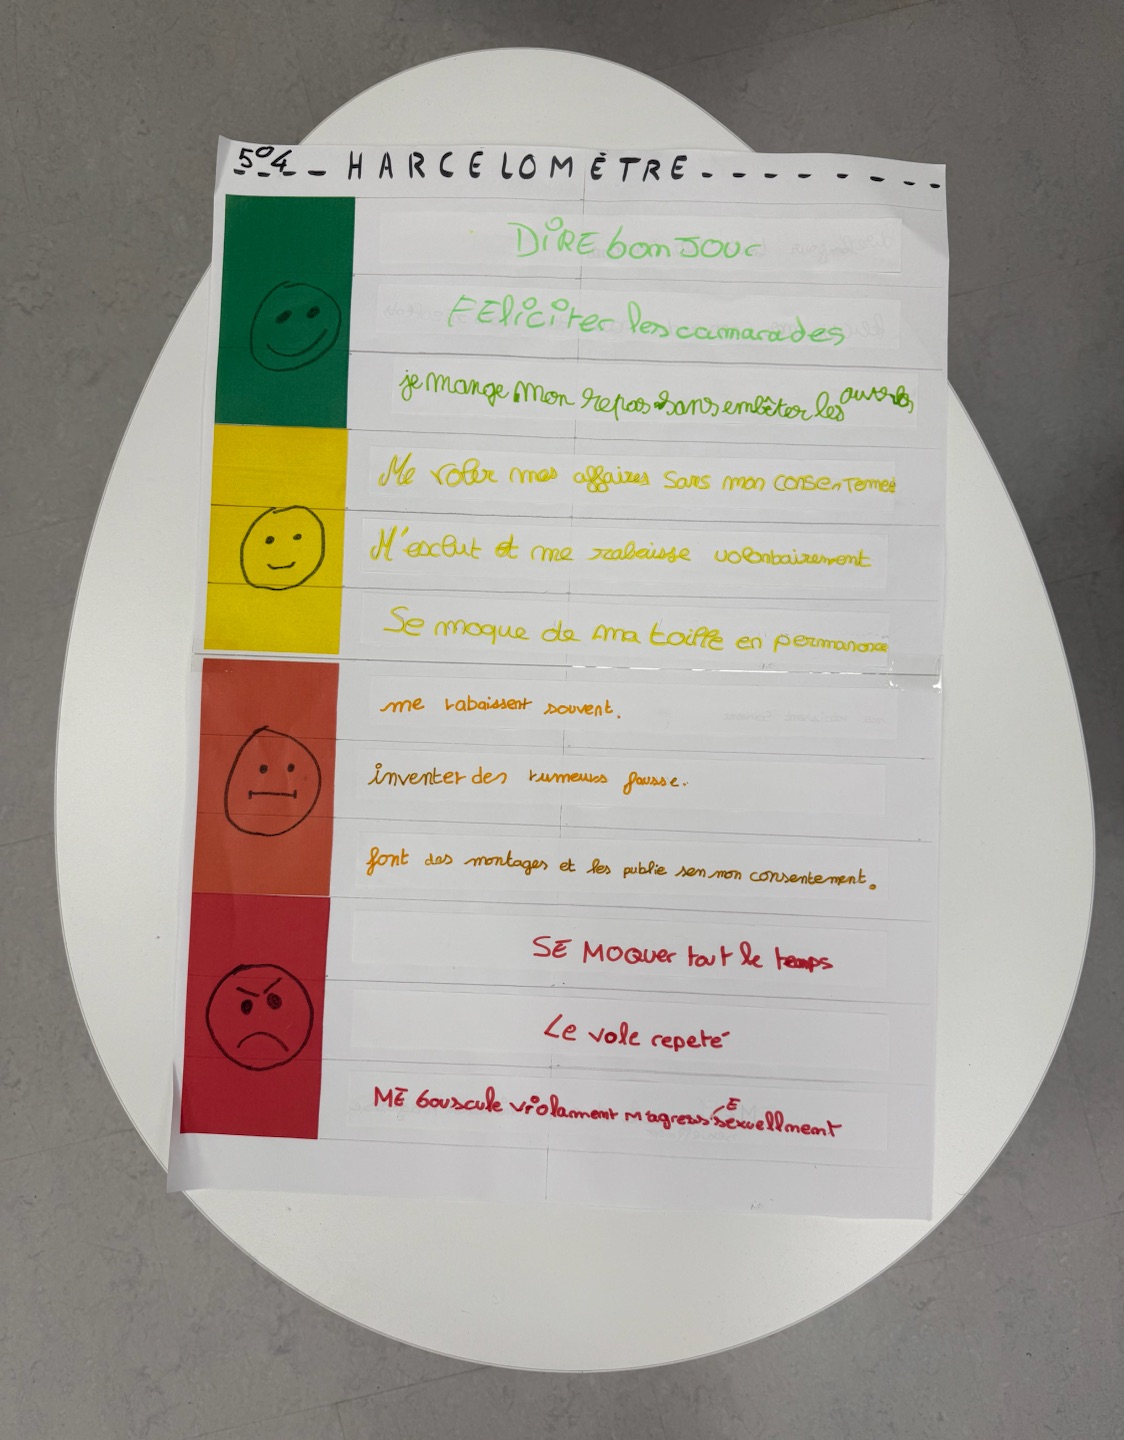 5°4 - HARCELOMÈTRE - - - - - - - -
DiRE bonJOUr
FEliciter les camarades
je mange mon repas sans embêter les autres
Me voler mes affaires sans mon consentement
M'exclut et me rabaisse volontairement
Se moque de ma taille en permanence
me rabaissent souvent.
inventer des rumeurs fausse.
font des montages et les publie sen mon consentement.
SE MOQuer tout le temps
Le vole repeté
ME bouscule violament m'agresse sexuellment